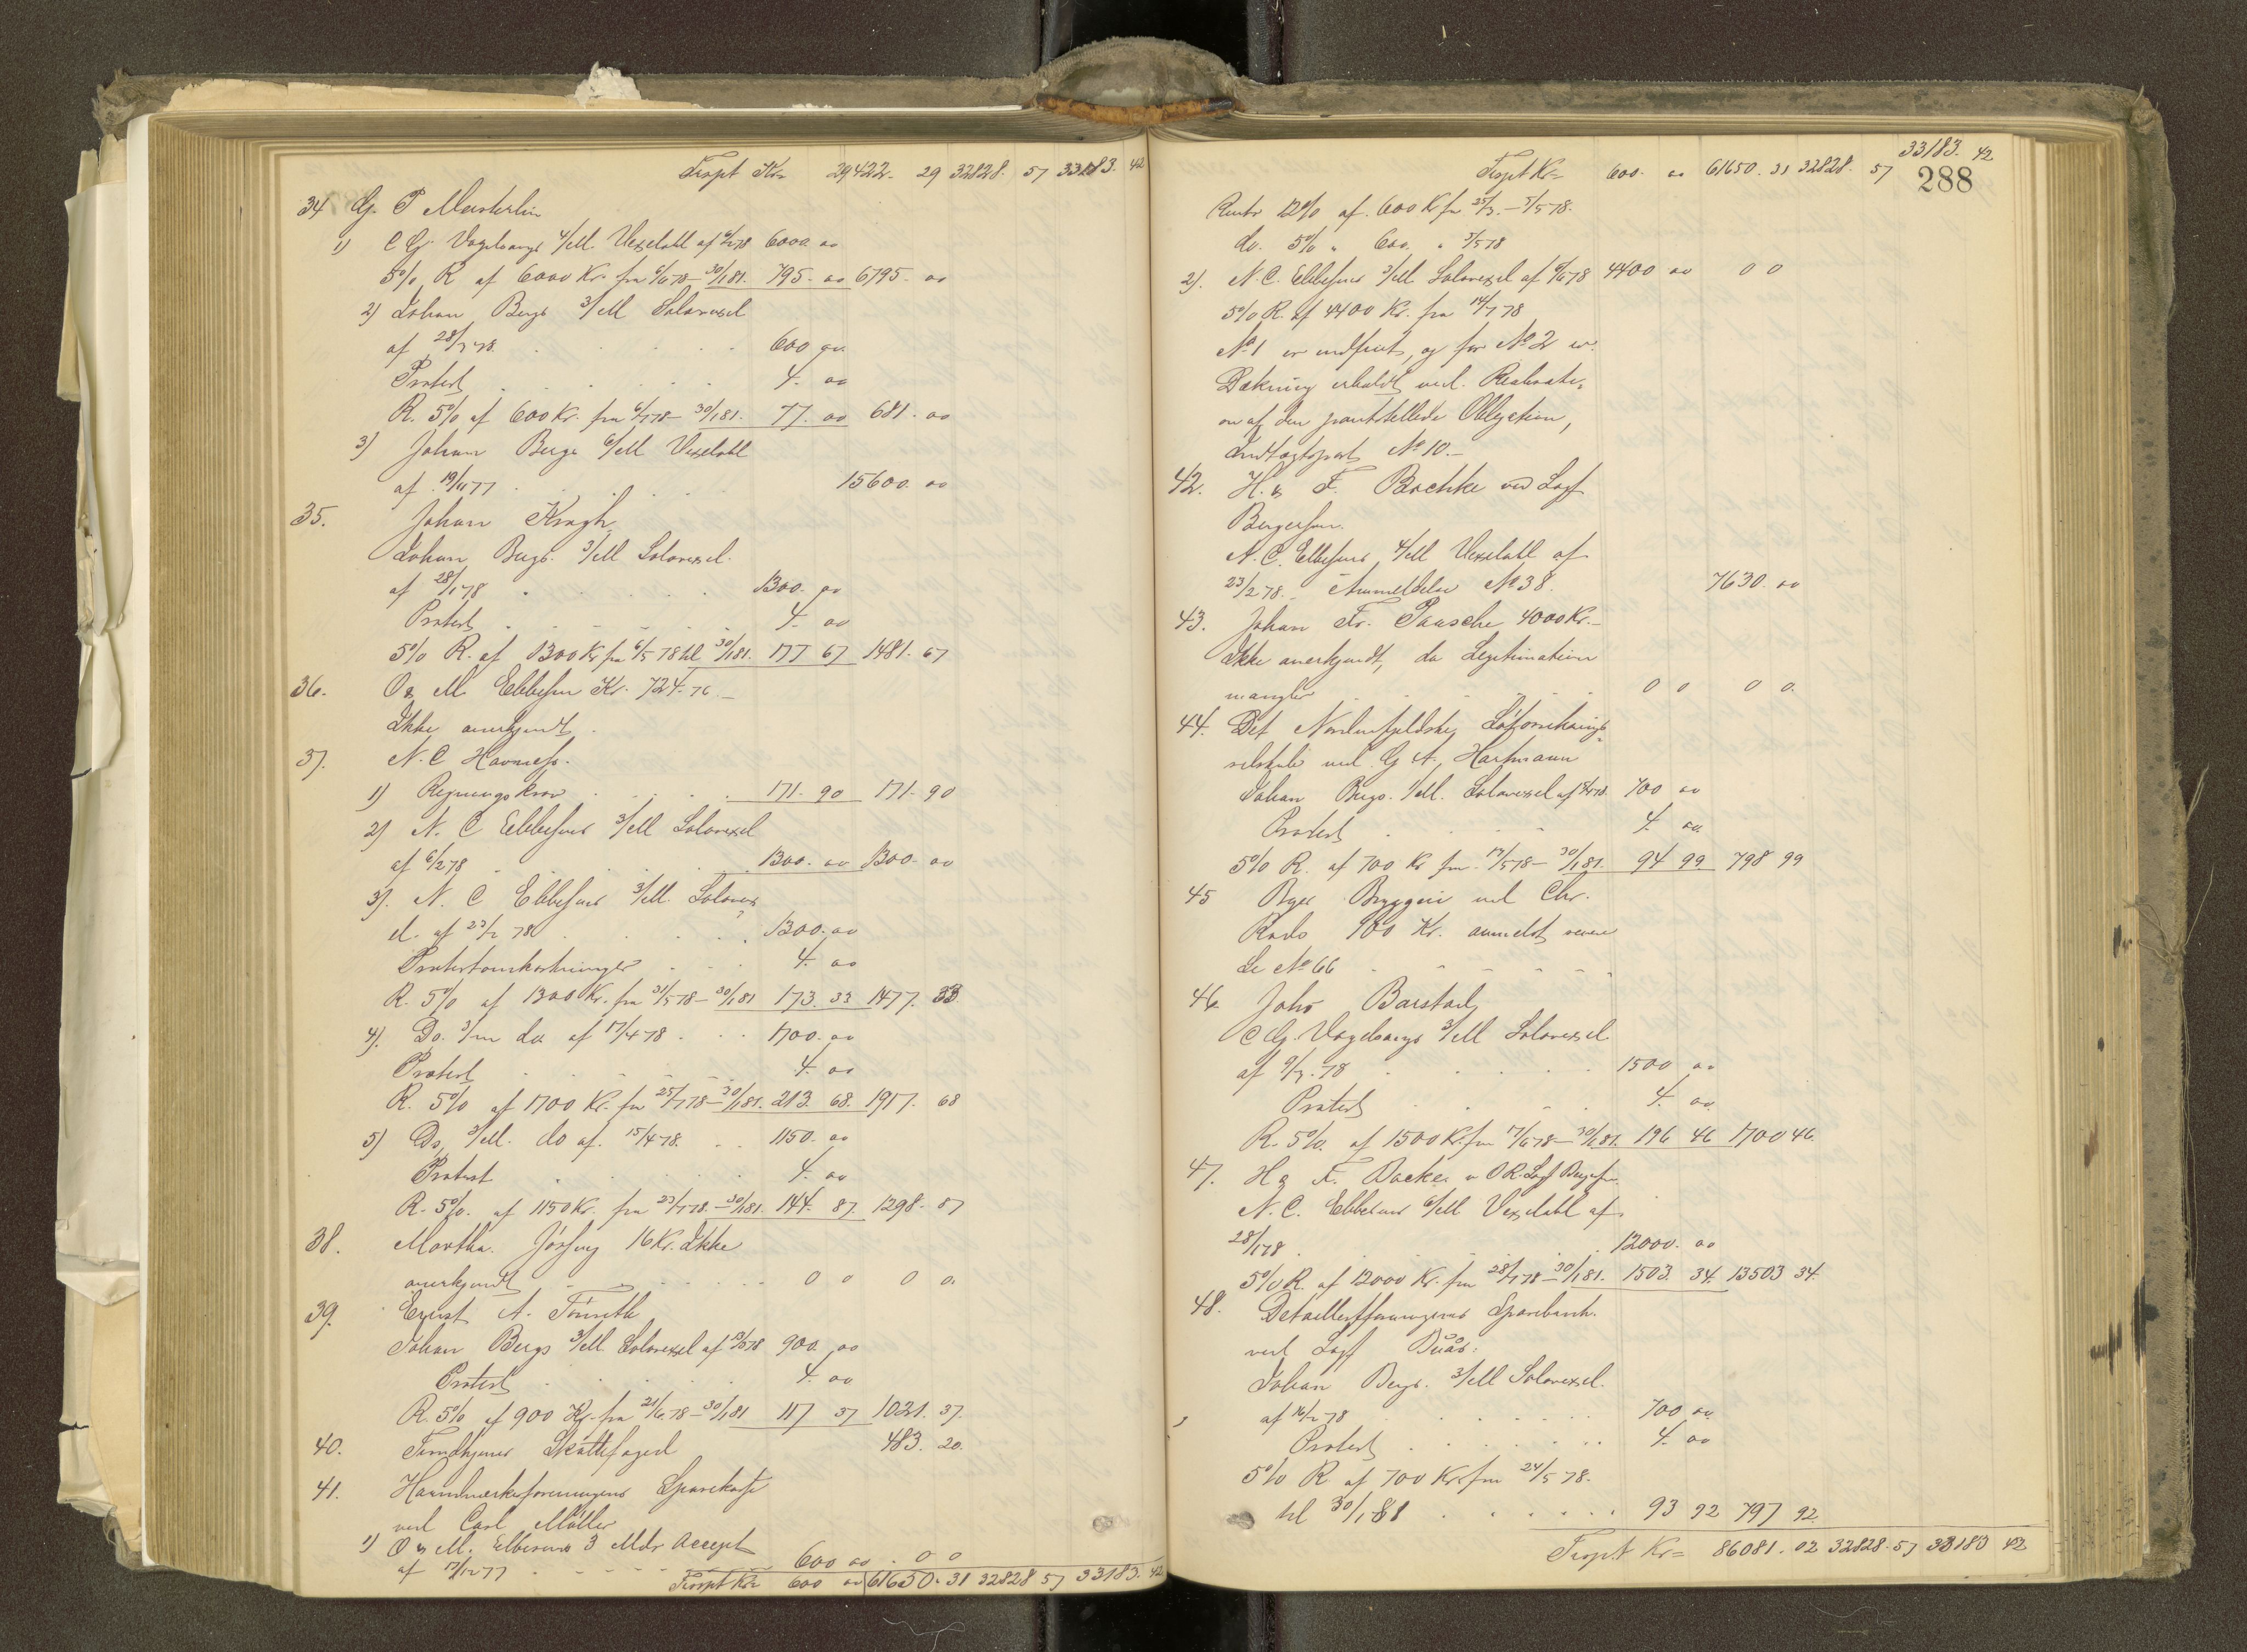 Trspt Kr= 29422. 29 32828. 57 33183. 42
34 G. P Mosterlin
1) C G. Vogelsangs 4/M. Vexelobl af 6/278 6000. 00
5% R af 6000 Kr. fra 6/678 - 30/181. 795. 00 6795. 00
2) Johan Bergs 3/M Solavexel
af 28/378 600 00
Protest 4. 00
R. 5% af 600 Kr. fra 6/778 - 30/181. 77. 00 681. 00
3) Johan Bergs 6/M Vexelobl
af 19/1177 15600. 00
35. Johan Krogh
Johan Bergs. 3/M Solavexel.
af 28/178 1300. 00
Protest 4. 00
5% R. af 1300 Kr fra 6/5 78 til 30/181. 177 67 1481. 67
36. O & M. Ebbesen Kr. 724. 76.
Ikke anerkjendt.
37. N. C Havness.
1) Regningskrav 171. 90 171. 90
2) N. C Ebbesens 3/M Solavexel
af 6/278 1300. 00 1300. 00
3). N. C Ebbesens 3/M. Solavex
el. af 23/2 78 1300. 00
Protestomkostninger 4. 00
R. 5% af 1300 Kr. fra 31/578 - 30/181 173. 33 1477. 33
4). Do. 3/m do. af 17/478 1700. 00
Protest 4. 00
R. 5% af 1700 Kr. fra 25/778 - 30/181. 213. 68. 1917. 68
5) Do, 3/M. do af. 15/478. 1150. 00
Protest 4. 00
R. 5%. af 1150 Kr. fra 23/778. - 30/181. 144. 87. 1298. 87
38. Martha. 16 Kr. Ikke
anerkjendt 0 0 0 0.
39. Ernst A.
Johan Bergs 3/M Solavexel af 900. 00
Protest 4. 00
R. 5% af 900 Kr. fra 21/6 78 - 30/181 117 37 1021. 37.
40. Trondhjems Skattefoged 483. 20.
41. Haandverkerforeningens Sparekasse
ved Carl Müller
1) O & M. Ebbesens 3 Mdr Accept
af 17/1277 600 00 . 0 0
Trspt Kr= 600 00 61650. 31 32828 57 33183. 42
33183. 42
Trspt Kr= 600. 00 61650. 31 32828. 57
288
Rente 12% af. 600 Kr fra 25/3. - 7/578.
do. 5% " 600. " 7/578
2). N. C. Ebbesens 3/M Solavexel af 4400 00 0 0
5% R. af 4400 Kr. fra 14/7 78
No 1 er indfriet, og for No 2 er
Dækning erholdt ved. Realisati=
on af den pantstillede Obligation,
Indtægtspost No 10.
42. H. & F. Bachke ved Sagf
Bergersen.
N. C. Ebbesens 4/M Vexelobl af
23/2 78. Anmeldelse No 38. 7630. 00
43. Johan Fr. Pausche 4000 Kr.
Ikke anerkjendt, da Legitimation
mangler 0 0 0 0.
44. Det Nordenfjeldske
selskab ved G. A. Hartmann
Johan Bergs. Solavexel af 700 00
Protest 4. 00.
5% R. af 700 Kr fra 13/578 - 30/181. 94 99. 798 99
45 Byes Bryggeri ved Chr.
100 Kr. anmeldt senere
Se No 66
46. Johs Barstad
C G. Vogelsangs 3/M Solavexel
af 9/3. 78 1500 00
Protest 4. 00.
R. 5%. af 1500 Kr. fra 17/678 - 30/181. 196 46 1700 46.
47. H & F. Backe v O R. Sagf Bergersen.
N. C. Ebbesens 6/M Vexelobl af.
28/178 12000. 00
5% R. af 12000 Kr. fra 28/778 - 30/181. 1503. 34. 13503 34.
48. Detaillistforeningens Sparebank.
ved Sagf Buås.
Johan Bergs. 3/M Solavexel.
af 16/2 78 700 00.
Protest 4. 00
5% R af 700 Kr. fra 24/5 78.
til 30/1 81 93 92 797 92.
Trspt Kr= 86081. 02 32828. 57 33183 42